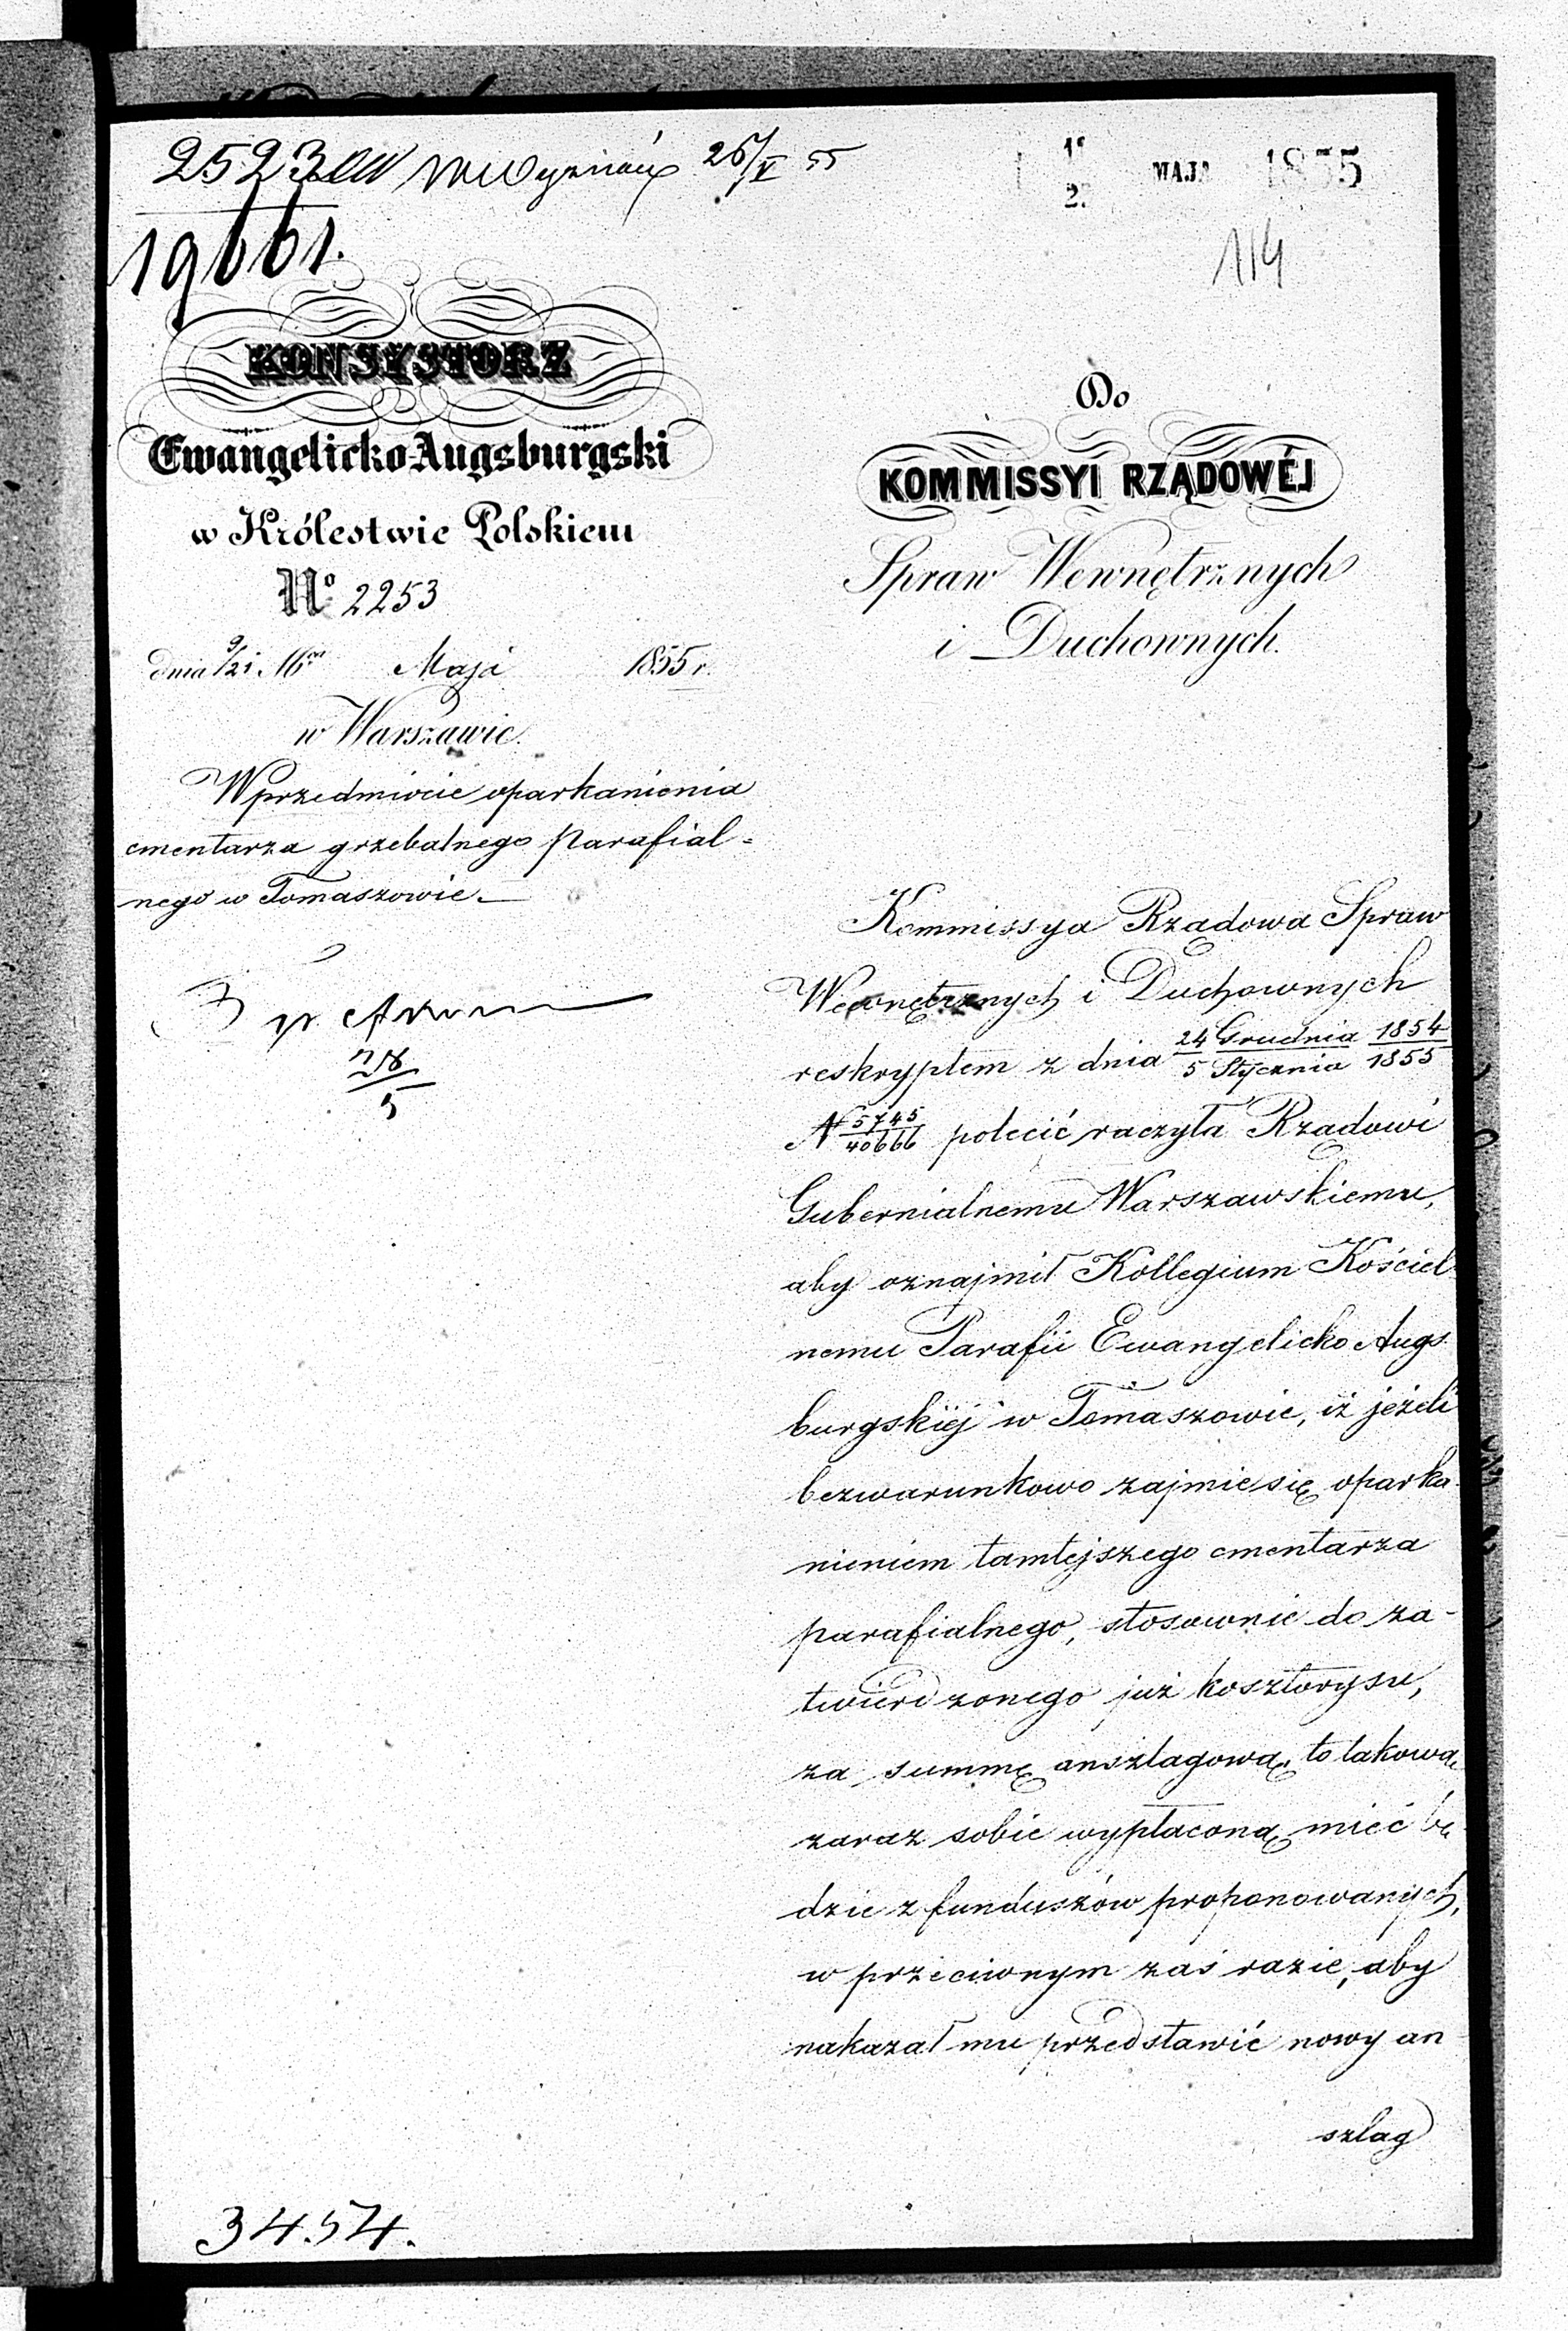 2523
26/V 55
MAJA 1855
19661.
114
KONSYSTORZ
Ewangelicko-Augsburgski
w Królestwie Polskiem
No 2253
Dnia 9/21 Mca Maja 1855 r.
w Warszawie.
W przedmiocie oparkanienia
cmentarza grzebalnego Parafial=
nego w Tomaszowie.
28/5
Do
KOMMISSYI RZĄDOWÉJ
Spraw Wewnętrznych
i Duchownych.
Kommissya Rządowa Spraw
Wewnętrznych i Duchownych
reskryptem z dnia 24 Grudnia 1854 / 5 Stycznia 1855
N 5745/40666 polecić raczyła Rządowi
Gubernialnemu Warszawskiemu,
aby oznajmił Kollegium Kościel
nemu Parafii Ewangelicko Augs
burgskiéj w Tomaszowie, iż jeżeli
bezwarunkowo zajmie się oparka
nieniem tamtejszego cmentarza
parafialnego, stosownie do za-
twierdzonego już kosztorysu,
za summę anszlagową, to takową
zaraz sobie wypłaconą mieć bę
dzie z funduszów proponowanych,
w przeciwnym zaś razie, aby
nakazał mu przedstawić nowy an
szlag
34.54.